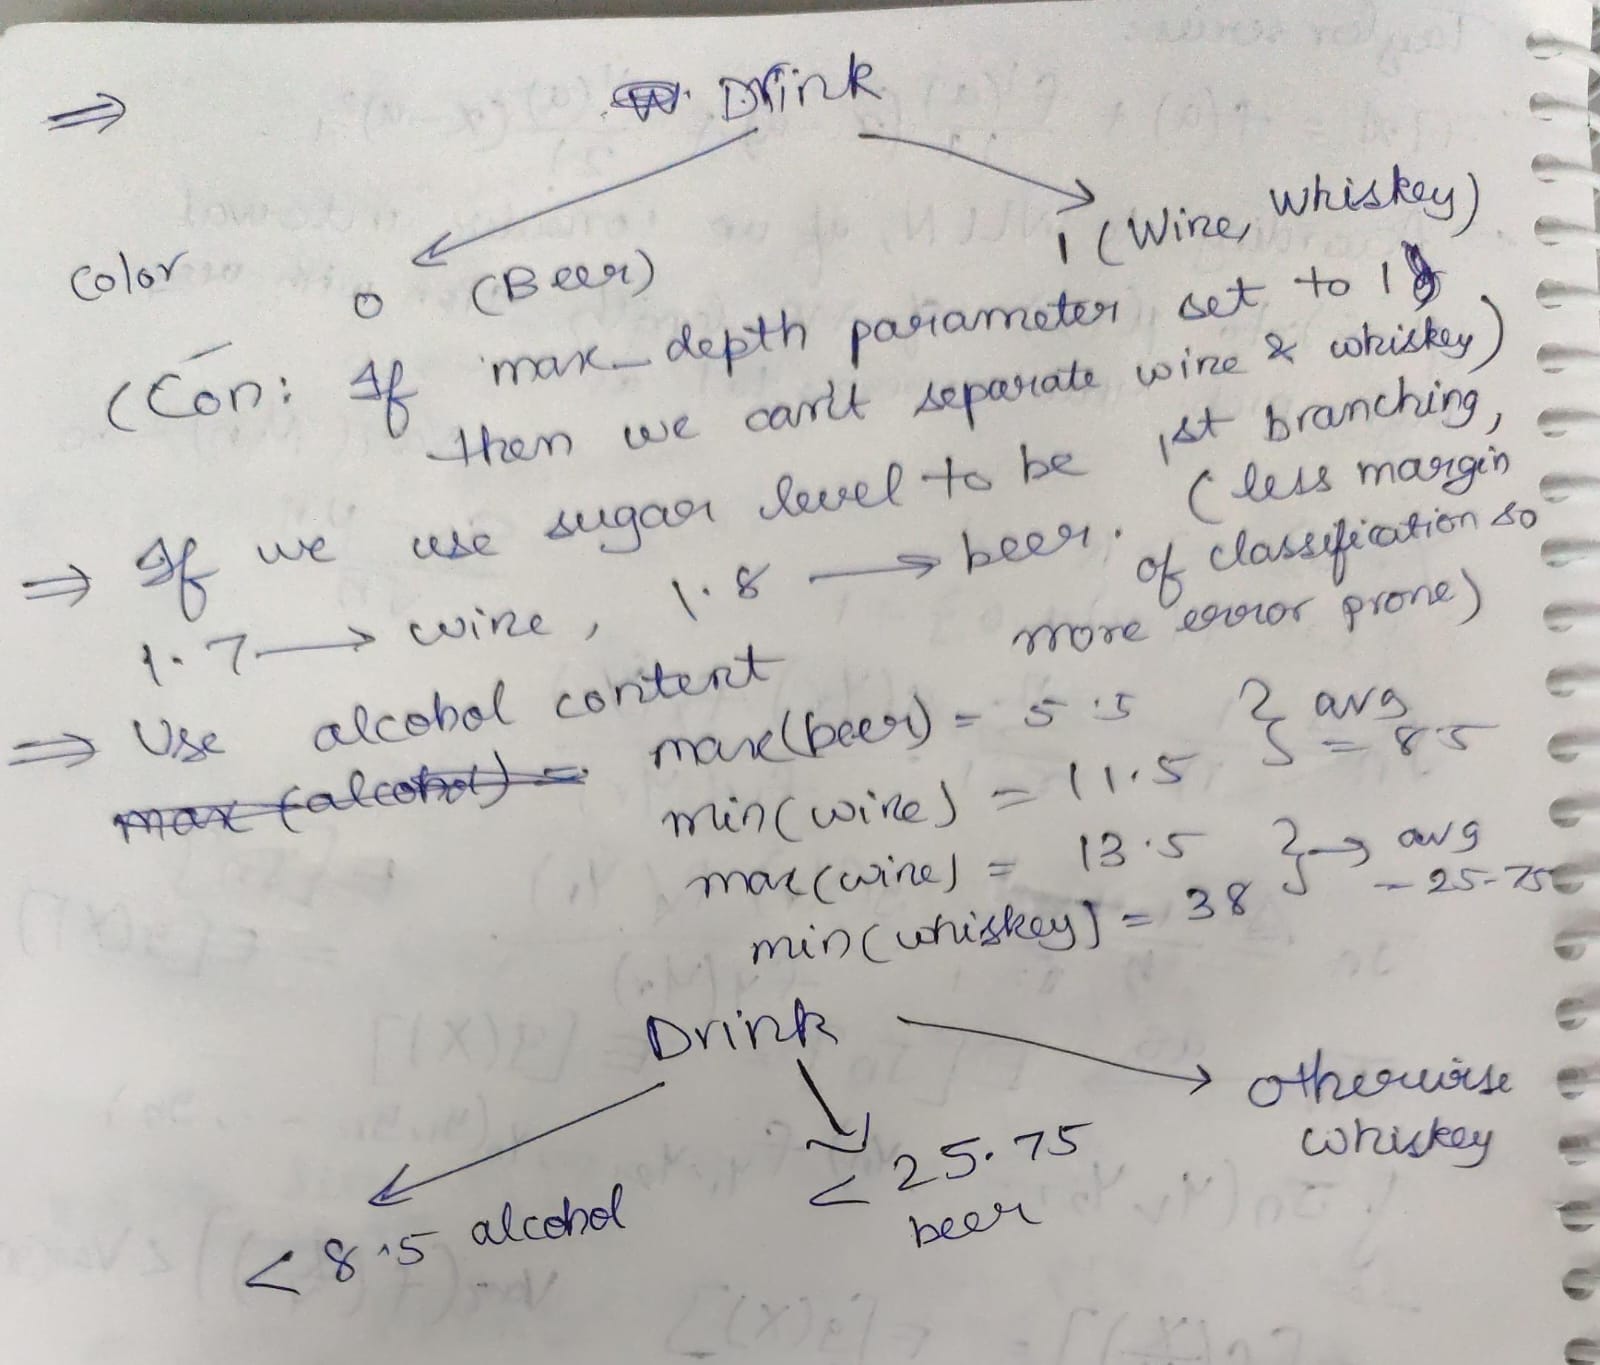 ⇒ Drink
Color 0 (Beer) 1 (Wine, Whiskey)
(Con: If max_depth parameter set to 1
then we can't separate wine & whiskey)
⇒ If we use sugar level to be 1st branching,
1.7 → wine, 1.8 → beer. (less margin
of classification so
more error prone)
⇒ Use alcohol content
max (alcohol) = max(beer) = 5.5 } avg
min(wine) = 11.5 = 8.5
max(wine) = 13.5 } → avg
min(whiskey) = 38 = 25.75
Drink
< 8.5 alcohol < 25.75 otherwise
beer whiskey